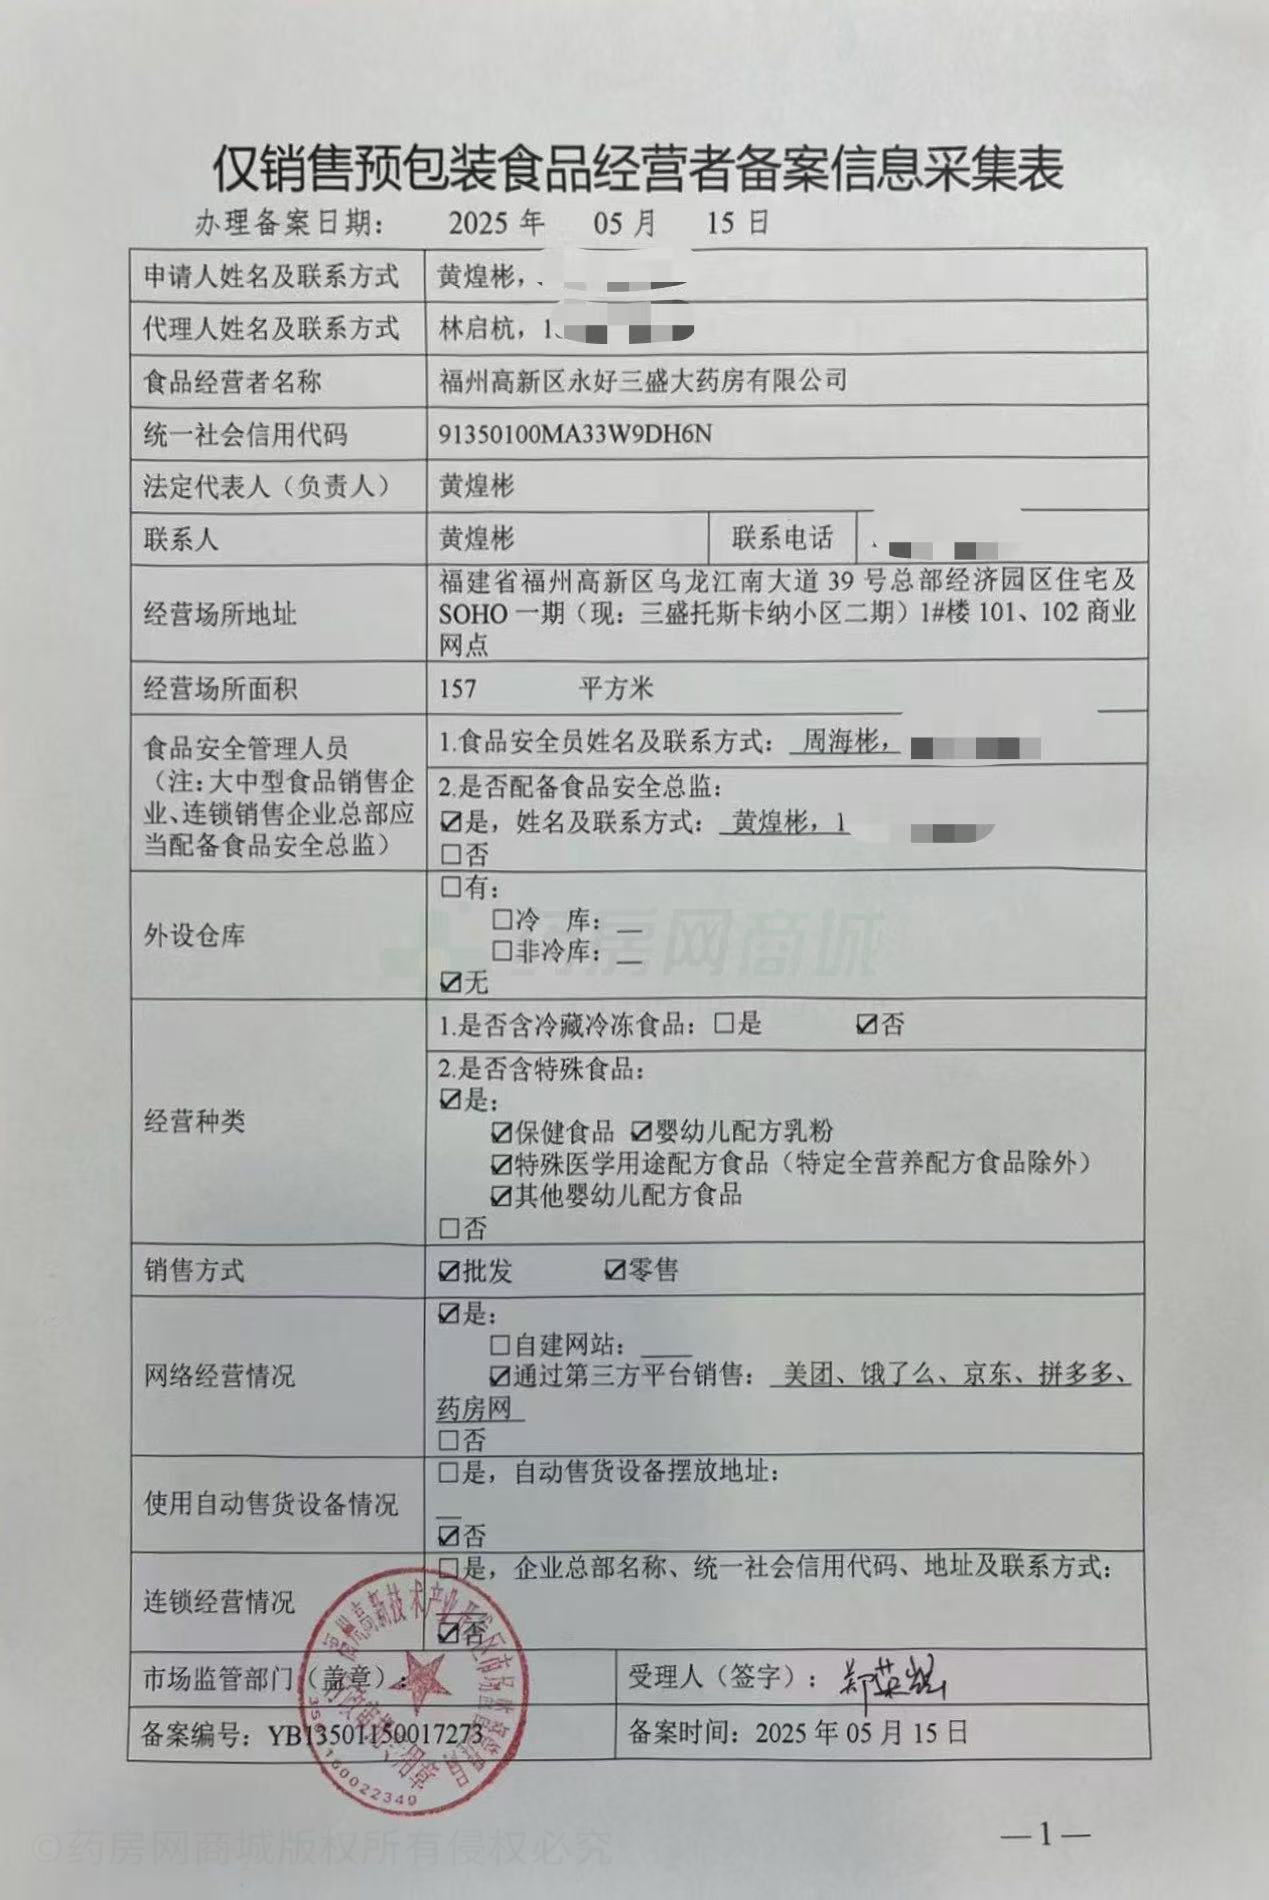 仅销售预包装食品经营者备案信息采集表
办理备案日期： 2025 年 05 月 15 日
申请人姓名及联系方式 黄煌彬，
代理人姓名及联系方式 林启杭，1
食品经营者名称 福州高新区永好三盛大药房有限公司
统一社会信用代码 91350100MA33W9DH6N
法定代表人（负责人） 黄煌彬
联系人 黄煌彬 联系电话
经营场所地址
福建省福州高新区乌龙江南大道 39 号总部经济园区住宅及
SOHO 一期（现：三盛托斯卡纳小区二期）1#楼 101、102 商业
网点
经营场所面积 157 平方米
食品安全管理人员
（注：大中型食品销售企
业、连锁销售企业总部应
当配备食品安全总监）
1.食品安全员姓名及联系方式： 周海彬，
2.是否配备食品安全总监：
☑是，姓名及联系方式： 黄煌彬，1
☐否
外设仓库
☐有：
☐冷 库：
☐非冷库：
☑无
经营种类
1.是否含冷藏冷冻食品：☐是 ☑否
2.是否含特殊食品：
☑是：
☑保健食品 ☑婴幼儿配方乳粉
☑特殊医学用途配方食品（特定全营养配方食品除外）
☑其他婴幼儿配方食品
☐否
销售方式 ☑批发 ☑零售
网络经营情况
☑是：
☐自建网站：
☑通过第三方平台销售： 美团、饿了么、京东、拼多多、
药房网
☐否
使用自动售货设备情况
☐是，自动售货设备摆放地址：
☑否
连锁经营情况
☐是，企业总部名称、统一社会信用代码、地址及联系方式：
☑否
市场监管部门（盖章）： 受理人（签字）：
备案编号：YB13501150017273 备案时间：2025 年 05 月 15 日
—1—
药房网商城
©药房网商城版权所有侵权必究